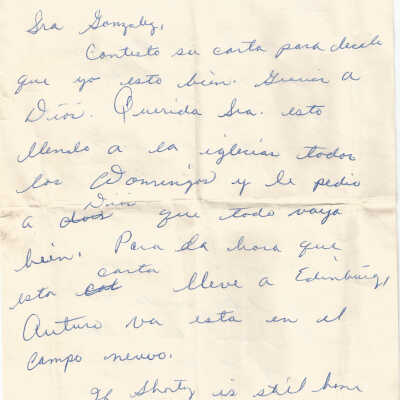 Sra Gonzalez,
Contesto su carta para decile
que yo esto bien. Gracias a
Dios. Querida Sra. esto
llendo a la iglesia todos
los Domingos y le pedio
a dios Dios que todo vaya
bien. Para la hora que
esta cat carta lleve a Edinburg,
Arturo va esta en el
campo nuevo.
If Shorty is still home